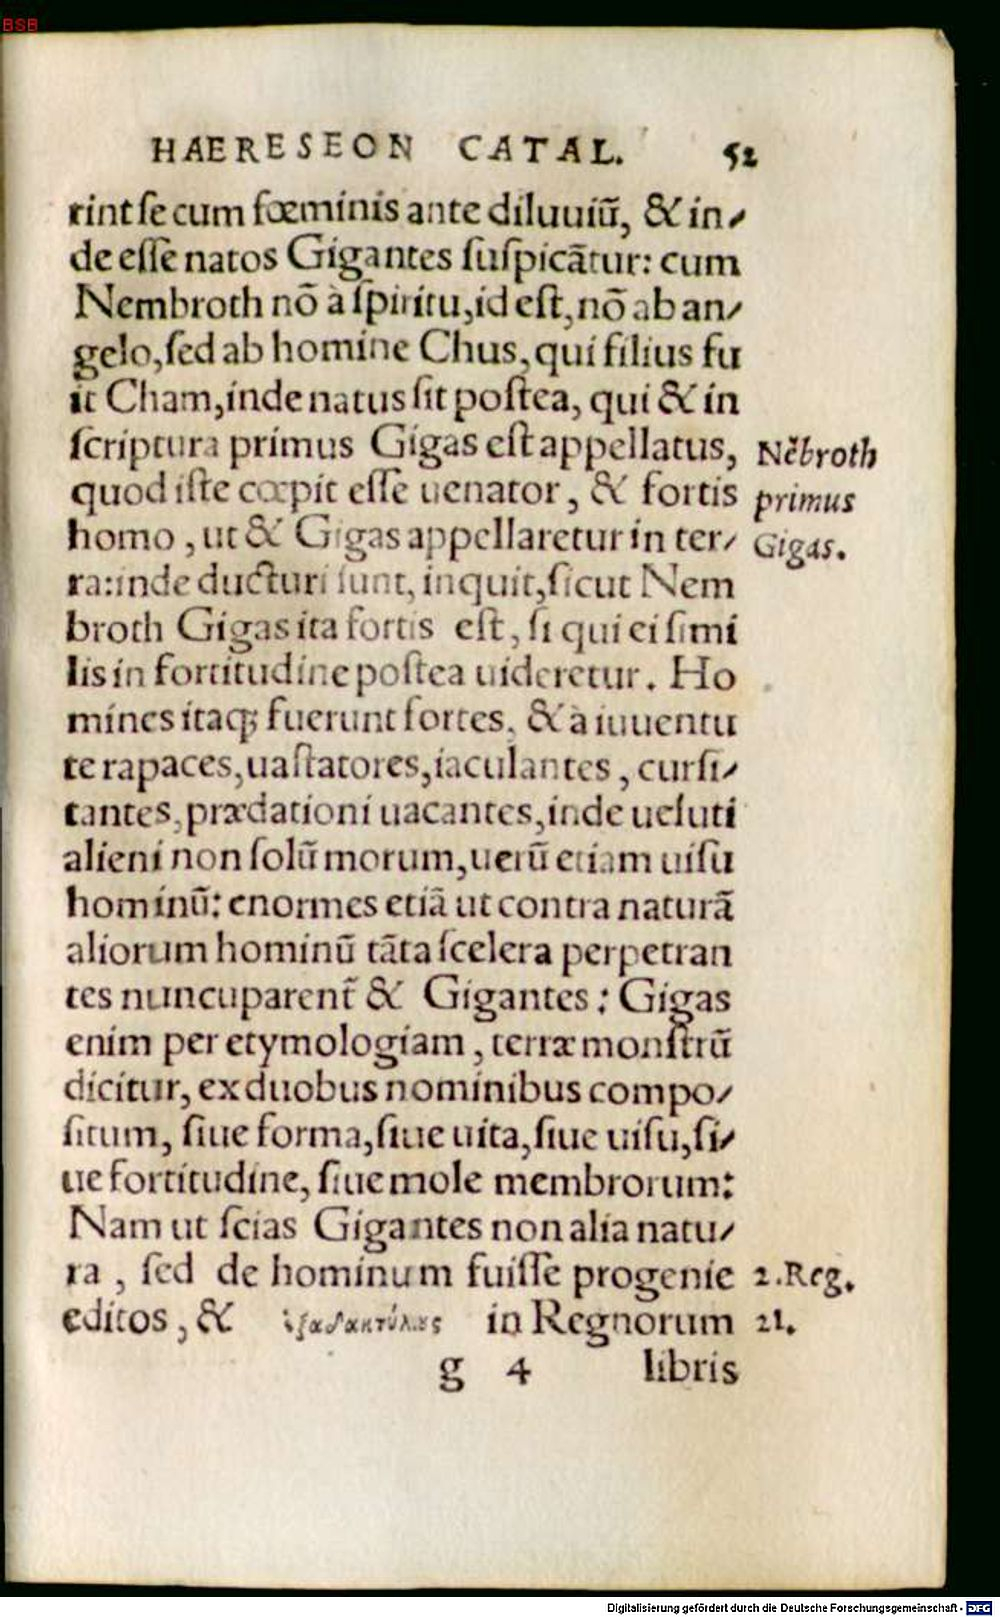 BSB
HAERESEON CATAL. 52
rint se cum fœminis ante diluuiũ, & in-
de esse natos Gigantes suspicãtur: cum
Nembroth nõ à spiritu, id est, nõ ab an-
gelo, sed ab homine Chus, qui filius fu
it Cham, inde natus sit postea, qui & in
scriptura primus Gigas est appellatus,
Nẽbroth
quod iste cœpit esse uenator, & fortis
primus
homo, ut & Gigas appellaretur in ter-
Gigas.
ra: inde ducturi sunt, inquit, sicut Nem
broth Gigas ita fortis est, si qui ei simi
lis in fortitudine postea uideretur. Ho
mines itaq; fuerunt fortes, & à iuuentu
te rapaces, uastatores, iaculantes, cursi-
tantes, prædationi uacantes, inde ueluti
alieni non solũ morum, uerũ etiam uisu
hominũ: enormes etiã ut contra naturã
aliorum hominũ tãta scelera perpetran
tes nuncuparent̃ & Gigantes: Gigas
enim per etymologiam, terræ monstrũ
dicitur, ex duobus nominibus compo-
situm, siue forma, siue uita, siue uisu, si-
ue fortitudine, siue mole membrorum:
Nam ut scias Gigantes non alia natu-
ra, sed de hominum fuisse progenie
2. Reg.
editos, & ἑξαδακτύλους in Regnorum
21.
g 4 libris
Digitalisierung gefördert durch die Deutsche Forschungsgemeinschaft - DFG